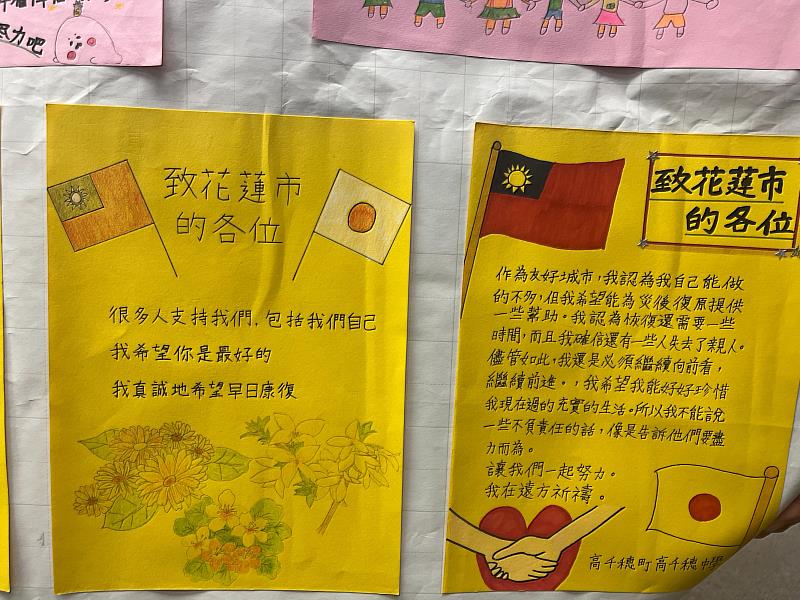 尽力吧
致花蓮市
的各位
很多人支持我們，包括我們自己
我希望你是最好的
我真誠地希望早日康復
致花蓮市
的各位
作為友好城市，我認為我自己能做
的不多，但我希望能為災後復原提供
一些幫助。我認為恢復還需要一些
時間，而且我確信還有一些人失去了親人。
儘管如此，我還是必須繼續向前看，
繼續前進。，我希望我能好好珍惜
我現在過的充實的生活。所以我不能說
一些不負責任的話，像是告訴他們要盡
力而為。
讓我們一起努力。
我在遠方祈禱。
高千穗町高千穗中學